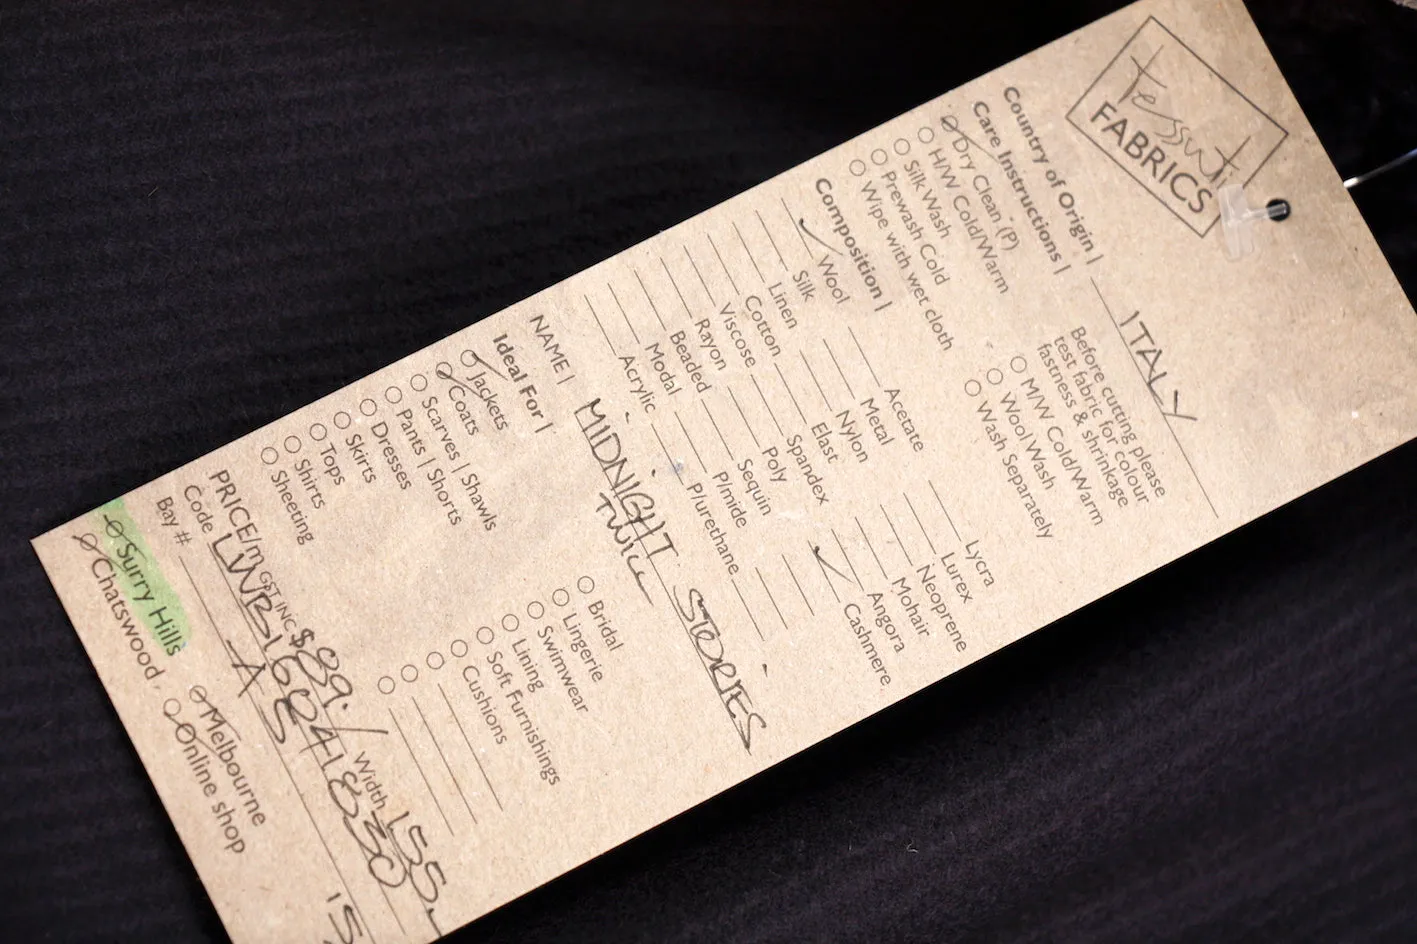 tessuti
FABRICS
Country of Origin | ITALY
Care Instructions |
Before cutting please
test fabric for colour
fastness & shrinkage
Dry Clean (P)
H/W Cold/Warm
Silk Wash
Prewash Cold
Wipe with wet cloth
M/W Cold/Warm
Wool Wash
Wash Separately
Composition |
Wool Acetate Lycra
Silk Metal Lurex
Linen Nylon Neoprene
Cotton Elast Mohair
Viscose Spandex Angora
Rayon Poly Cashmere
Beaded Sequin
Modal P/mide
Acrylic P/urethane
NAME | MIDNIGHT STORIES
TWILL
Ideal For |
Jackets
Coats
Scarves | Shawls
Pants | Shorts
Dresses
Skirts
Tops
Shirts
Sheeting
Bridal
Lingerie
Swimwear
Lining
Soft Furnishings
Cushions
PRICE/m GST INC $89./ Width 155
Code
Bay # A
Surry Hills Melbourne
Chatswood Online shop